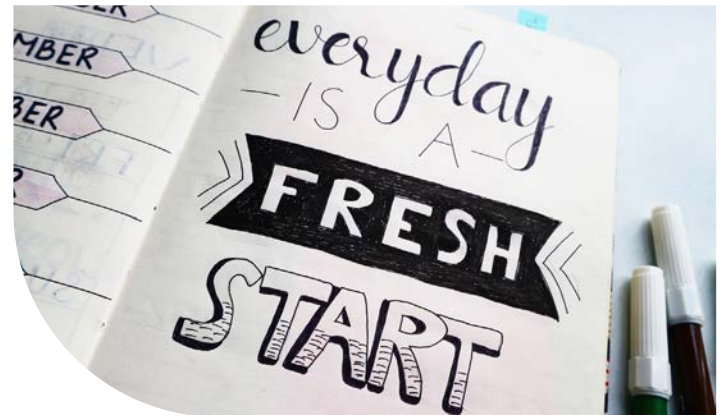 MBER
BER
everyday
— IS A —
FRESH
START